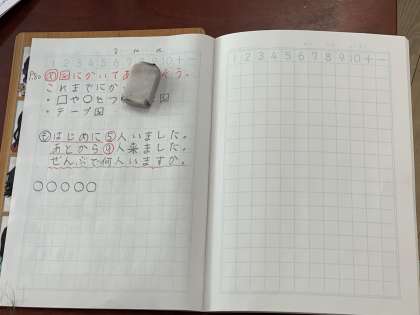 1 2 3 4 5 6 7 8 9 10 + -
1 2 3 4 5 6 7 8 9 10 + -
P80 図にかいて う。
これまでにか
・□や○をつ 図
・テープ図
も はじめに⑤人いました。
あとから④人来ました。
ぜんぶで何人いますか。
○○○○○